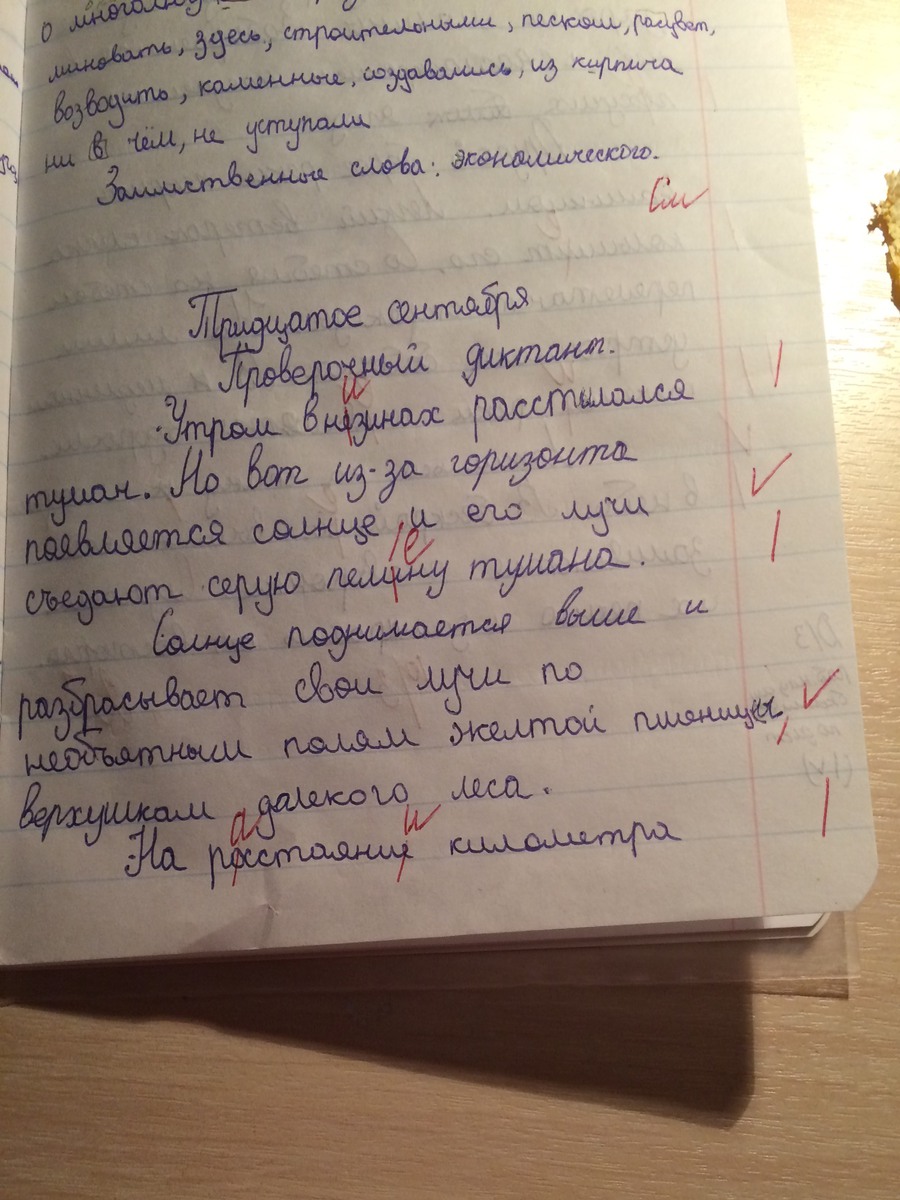 о
миновать, здесь, строительными, песком, расцвет,
возводить, каменные, создавались, из кирпича
ни в чём, не уступали
Заимственные слова: экономического.
См
Тридцатое сентября
Проверочный диктант.
и
Утром внезинах расстилался
туман. Но вот из-за горизонта
появляется солнце и его лучи
е
съедают серую пелину тумана.
Солнце поднимается выше и
разбрасывает свои лучи по
необъятным полям желтой пшеницы,
верхушкам далекого леса.
а и
На росстаяние километра
Д/З